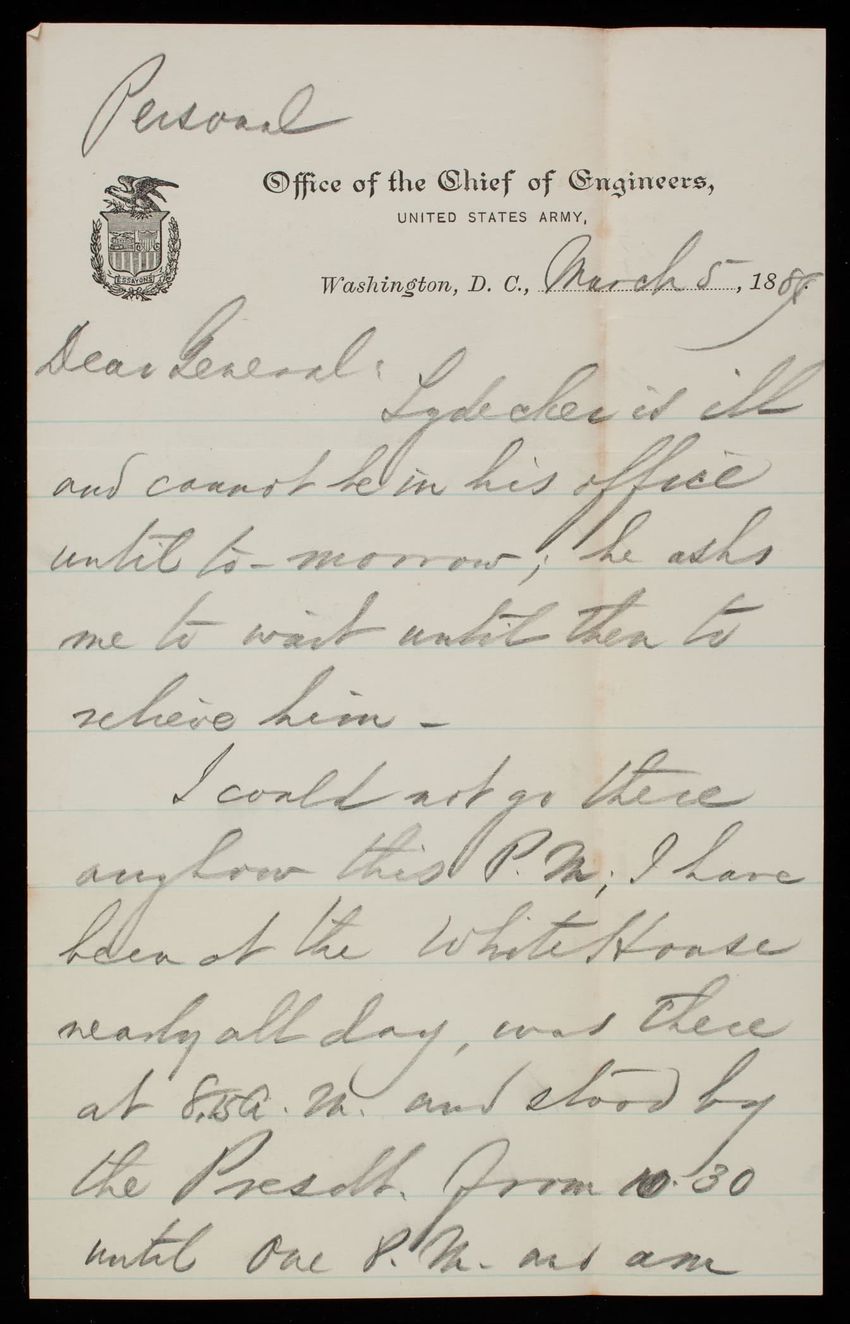 Personal
Office of the Chief of Engineers,
UNITED STATES ARMY,
Washington, D. C., March 5, 1889.
ESSAYONS
Dear General:
Lydecker is ill
and cannot be in his office
until to-morrow; he asks
me to wait until then to
relieve him -
I could not go there
anyhow this P.M; I have
been at the White House
nearly all day, was there
at 8.15 A.M. and stood by
the Presdt. from 10.30
until One P.M. and am